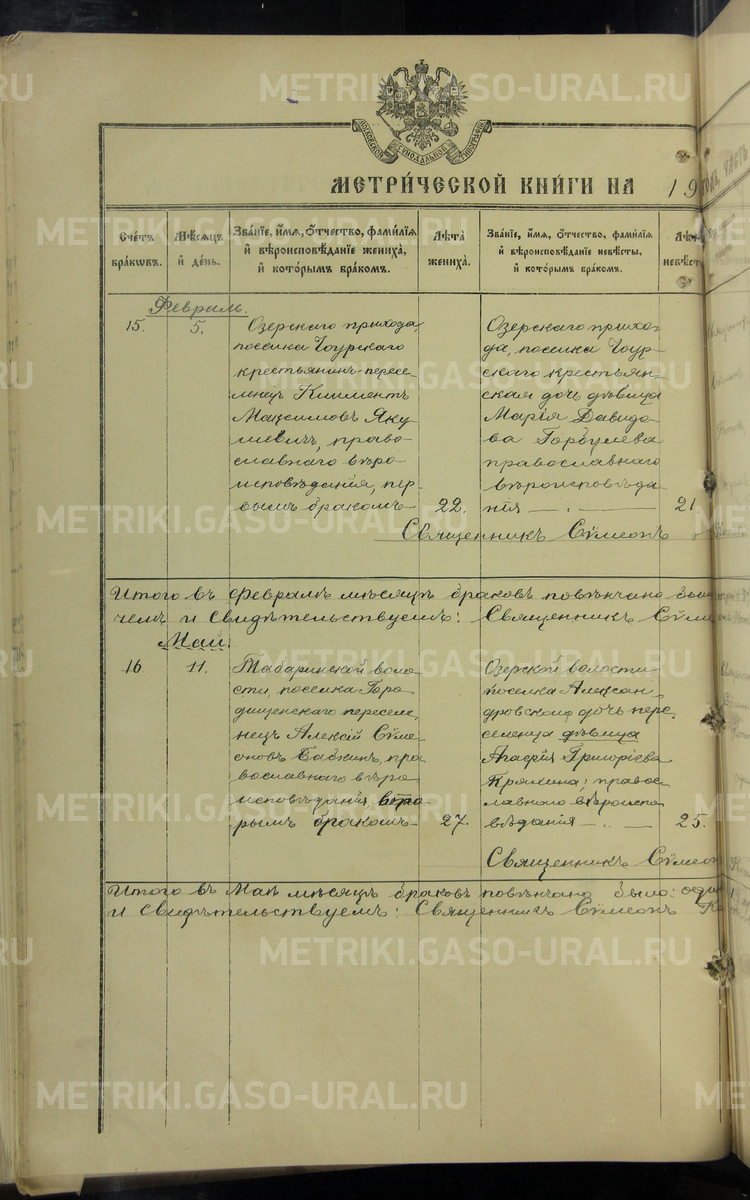 МОСКОВСКОЙ СѴНОДАЛЬНОЙ ТИПОГРАФІИ
МЕТРИ́ЧЕСКОЙ КНИ́ГИ НА 19
Сче́тъ бра́кωвъ.
Мѣ́сяцъ и҆ де́нь.
Зва́нїе, и҆́мѧ, ѻ҆́тчество, фами́лїѧ и҆ вѣроисповѣ́данїе жениха̀, и҆ кото́рымъ бра́комъ.
Лѣ́та жениха̀.
Зва́нїе, и҆́мѧ, ѻ҆́тчество, фами́лїѧ и҆ вѣроисповѣ́данїе невѣ́сты, и҆ кото́рымъ бра́комъ.
Лѣ́та невѣ́ст
Февраль.
15.
5.
Озерскаго прихода,
поселка Чоурскаго
крестьянинъ-пересе-
ленецъ Климентъ
Максимовъ Яку
шевичъ, право-
славнаго вѣро-
исповѣданія, пер-
вымъ бракомъ
22.
Озерскаго прихо-
да, поселка Чоур-
скаго крестьян-
ская дочь дѣвица
Марія Давидо-
ва Горбулева
православнаго
вѣроисповѣда
нія
21
Священникъ Сѵмеонъ
Итого въ Февралѣ мѣсяцѣ браковъ повѣнчано бы
чемъ и свидѣтельствуемъ: Священникъ Сѵме
Май.
16
11.
Табаринской воло
сти, поселка Горо
дищенскаго переселе,
нецъ Алексій Сѵме
оновъ Бабкинъ, пра
вославнаго вѣро
исповѣданія вто
рымъ бракомъ
27.
Озерской волости
поселка Алексан,
дровскаго дочь пере,
селенца дѣвица
Агаѳія Григоріева
православнаго вѣроиспо
вѣданія
25.
Священникъ Сѵмеон
Итого въ Маѣ мѣсяцѣ браковъ повѣнчано было: оди
и свидѣтельствуемъ: Священникъ Сѵмеонъ
METRIKI.GASO-URAL.RU